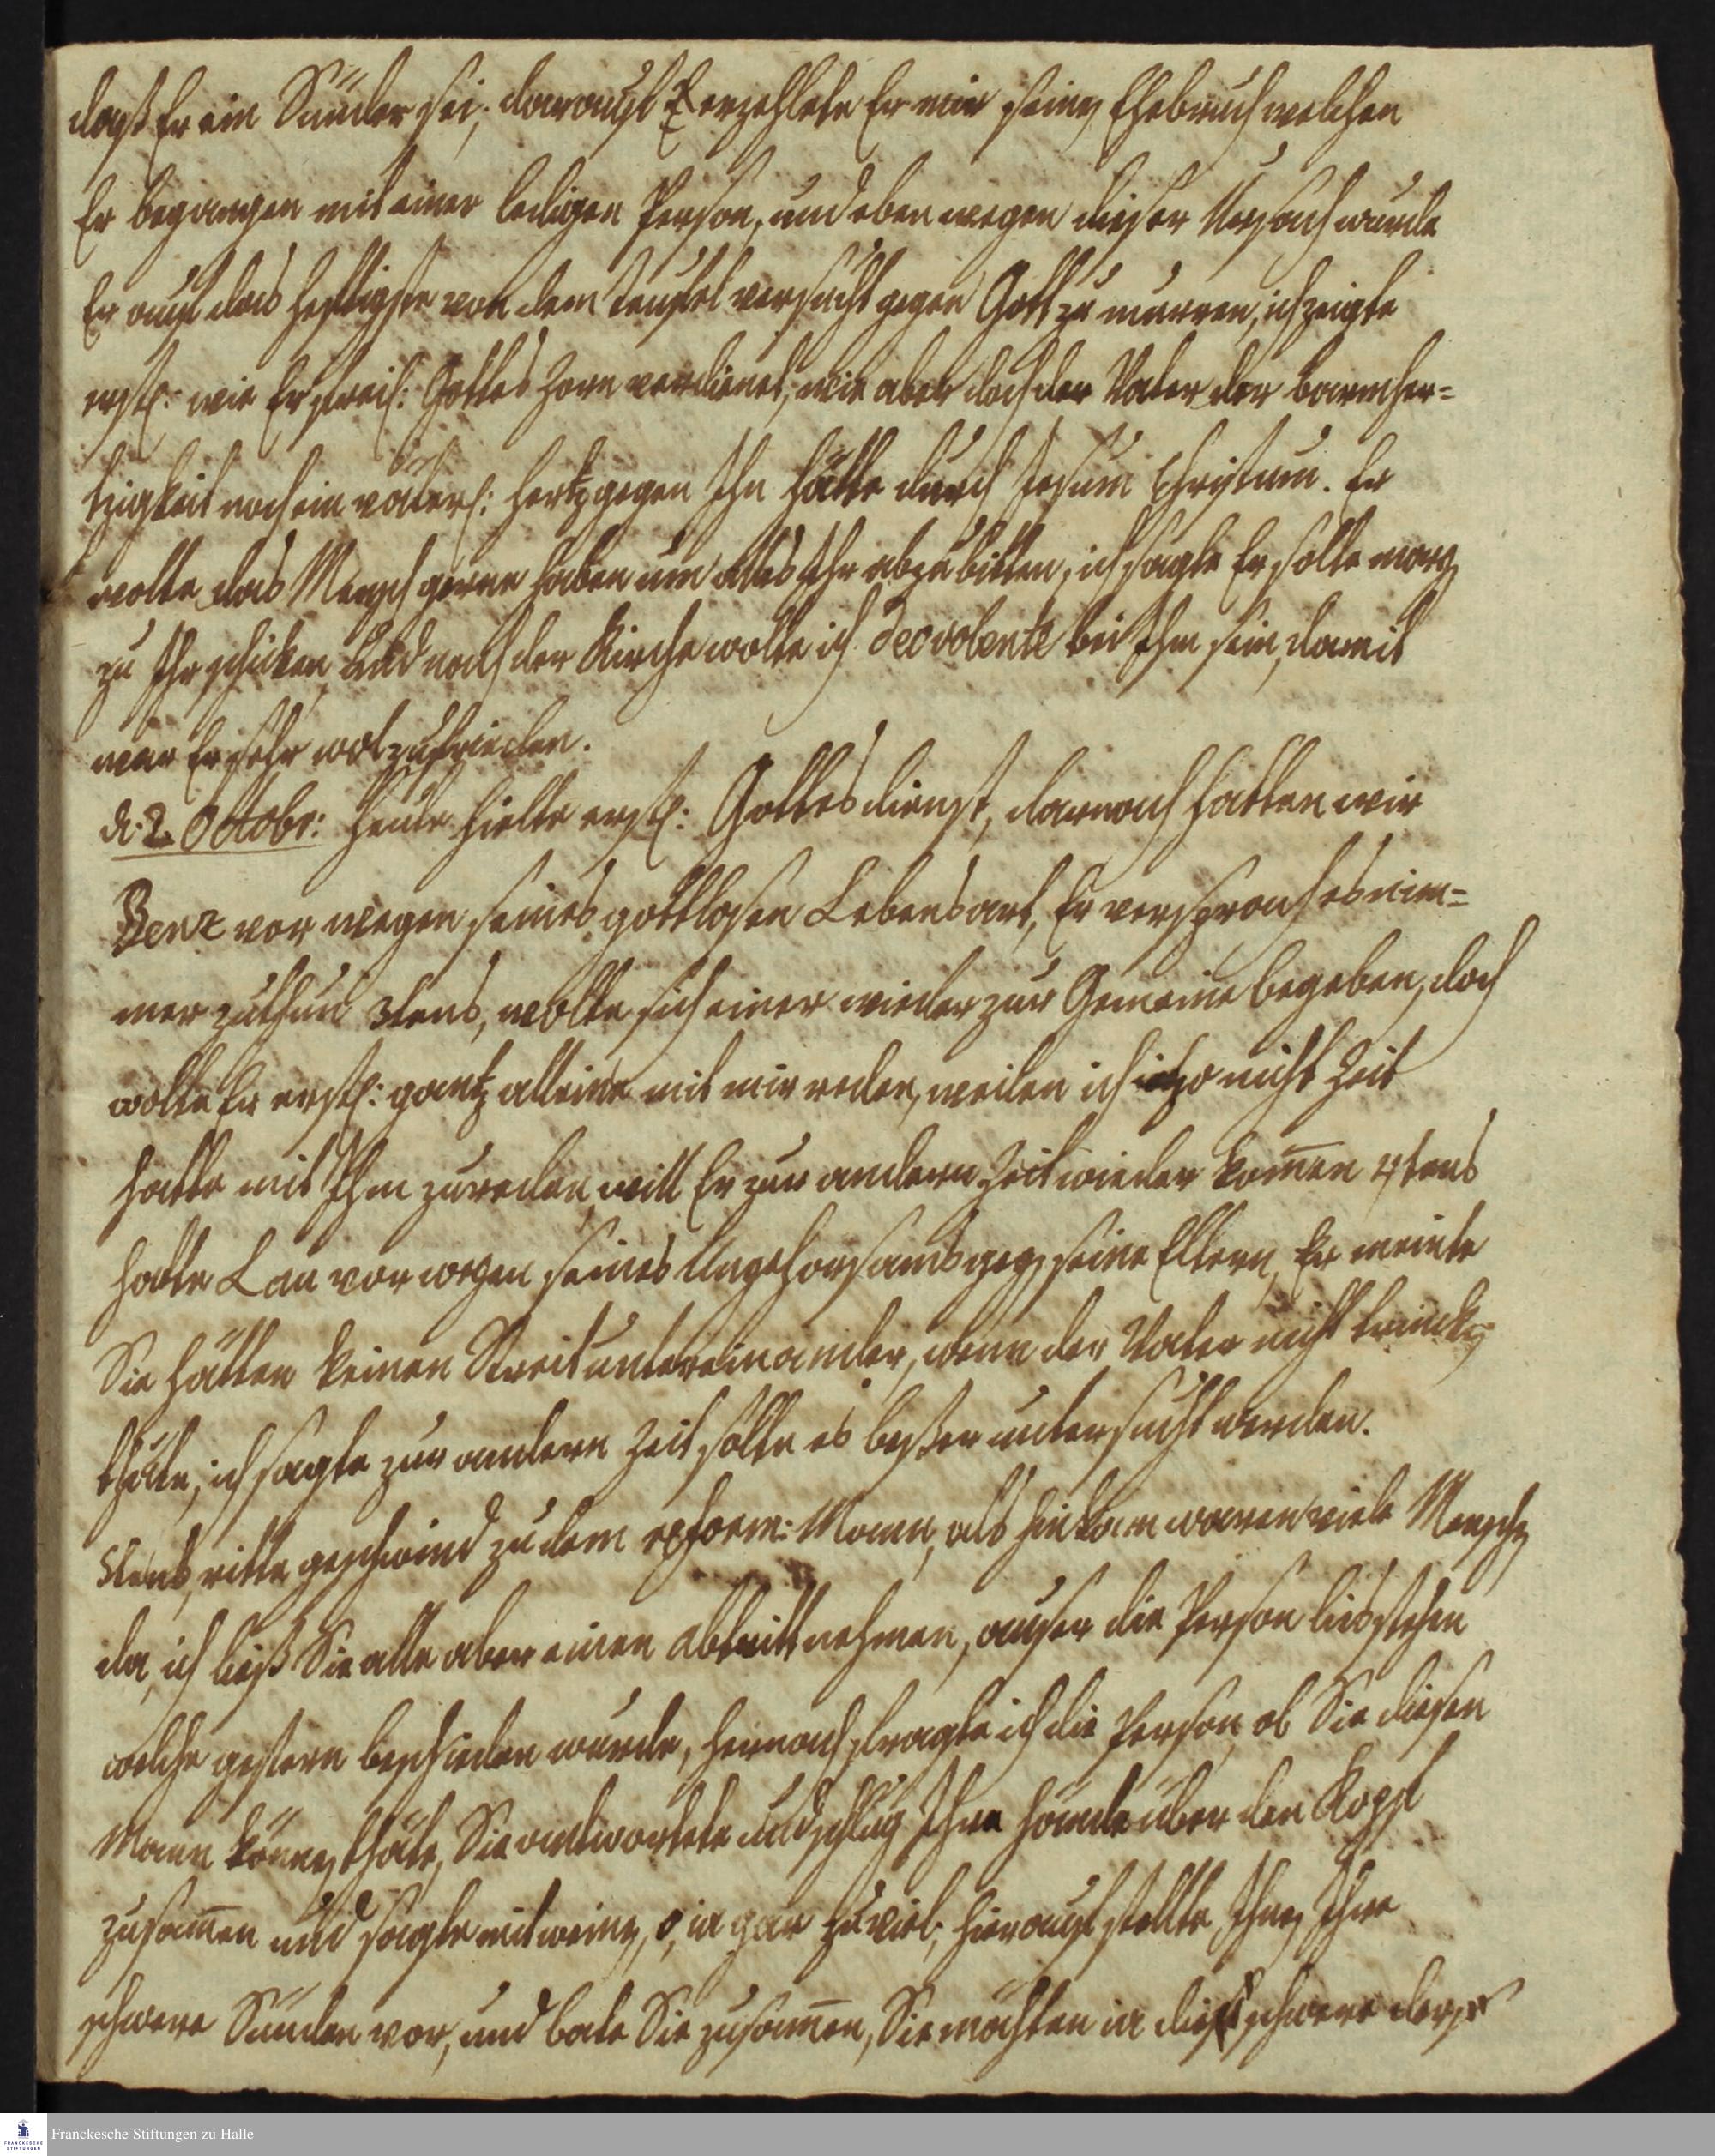 daß Er ein Sünder sei; darauf erzehlete Er mir seinen Ehebruch welchen
Er begangen mit einer ledigen Person, und eben wegen dieser Ursach wurde
Er auf das hefftigste von dem teufel versucht gegen Gott zu murren, ich zeigte
erstl: wie Er freil: Gottes Zorn verdienet, wie aber doch der Vater der barmher-
tzigkeit noch ein väterl: hertz gegen Ihn hätte durch Jesum Christum. Er
wolte das Mensch gerne haben um alles Ihr abzubitten, ich sagte Er solte morg
zu Ihr schicken und nach der Kirche wolte ich deo volente bei Ihm sein, damit
war Er sehr wol zufrieden.
d. 2. Octobr: heute hielte erstl: Gottesdienst, darnach hatten wir
Benz vor wegen seines gottlosen Lebensart, Er versprach es nim-
mer zuthun 3tens, wolte sich einer wieder zur Gemeine begeben, doch
wolte Er erstl: gantz alleine mit mir reden, weilen ich itzo nicht Zeit
hatte mit Ihm zureden, will Er zur andern Zeit wieder kom̅en 4tens
hatte Lau vor wegen seines Ungehorsams geg seine Eltern, Er meinte
Sie hätten keinen Streit untereinander, wenn der Vater nicht trincken
thäte, ich sagte zur andern Zeit solte es beßer untersucht werden.
5tens, ritte geschwind zu dem reform: Mann, als hinkam waren viele Menschen
da, ich ließ Sie alle aber einen abtritt nehmen, auser die Person lies stehen
welche gestern beschieden wurde, hernach fragte ich die Person, ob Sie diesen
Mann kennen thäte, Sie antwortete und schlug Ihre hände über den Kopf
zusam̅en und sagte mit weinen, o, ja gar zu viel, hierauf stellte Ihnen Ihre
schwere Sünden vor, und bate Sie zusam̅en, Sie möchten ja diese schwere